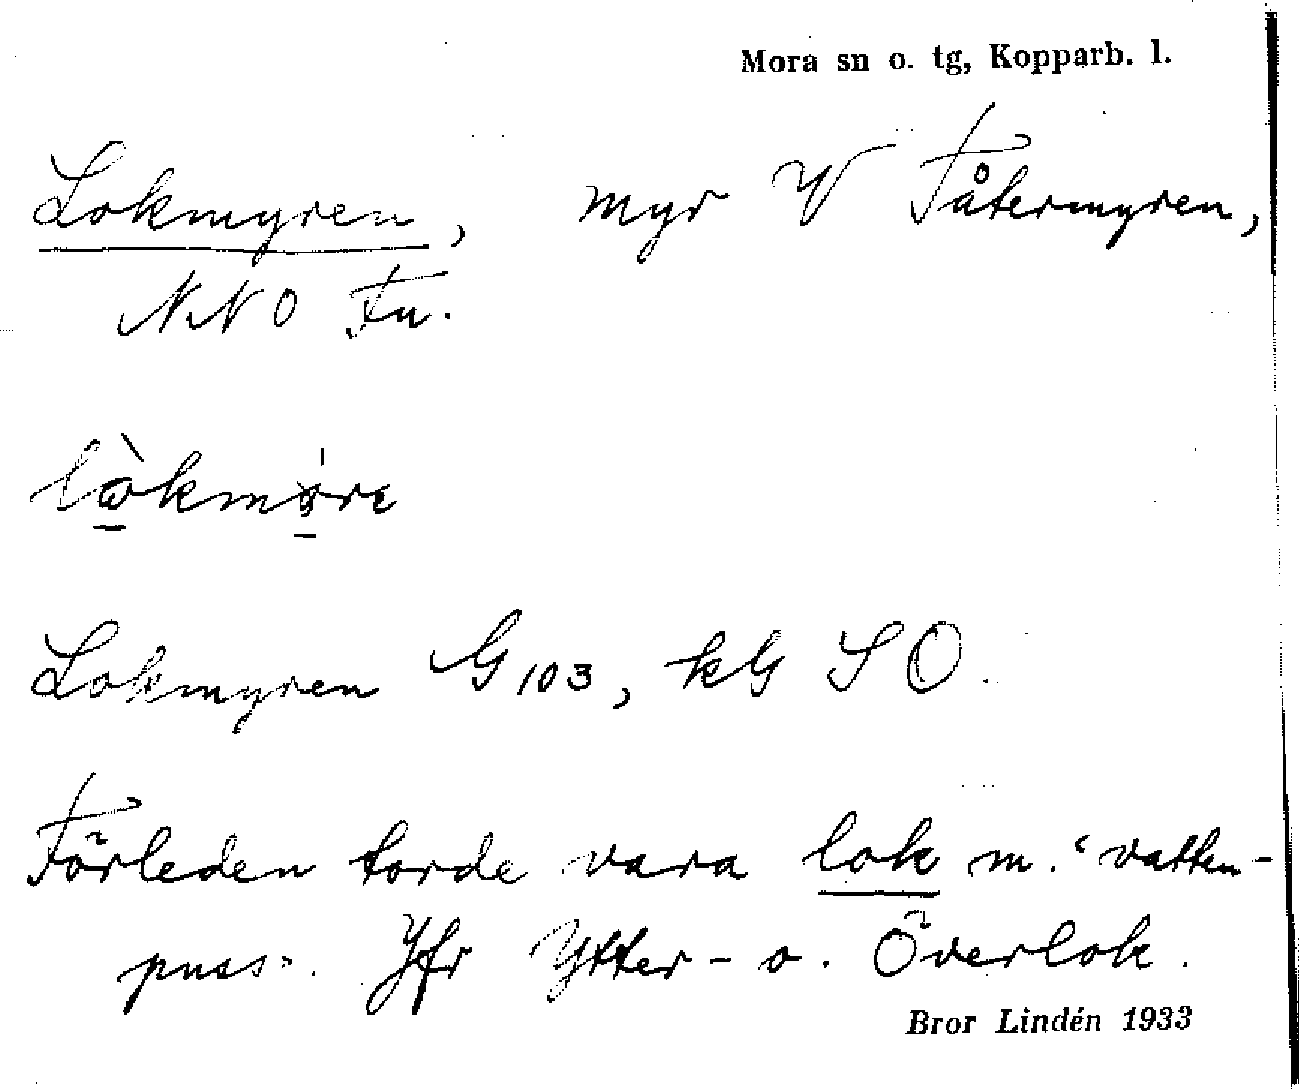 Mora sn o. tg, Kopparb. l.
Lokmyren, myr V Fåtermyren,
NNO Fu.
Lokmyren G103, kG SO.
Förleden torde vara lok m. "vatten-
puss". Jfr Ytter- o. Överlok.
Bror Lindén 1933